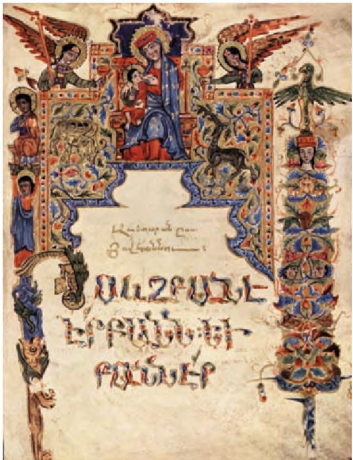 Աւետարան ըստ
Յովհաննու :
Ի ՍԿԶԲԱՆԷ
ԷՐ ԲԱՆՆ ԵՒ
ԲԱՆՆ ԷՐ